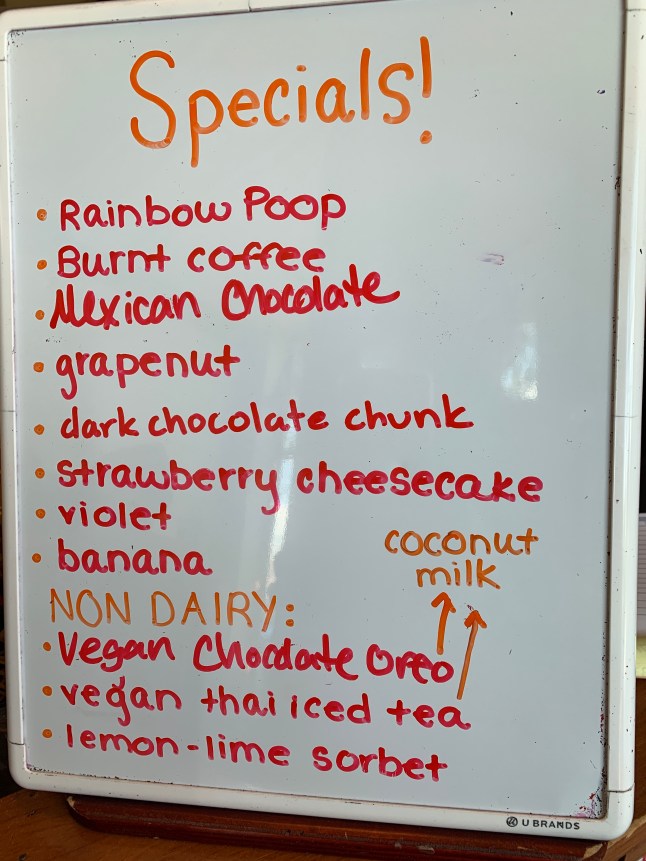 Specials!
• Rainbow Poop
• Burnt coffee
• Mexican Chocolate
• grapenut
• dark chocolate chunk
• strawberry cheesecake
• violet
• banana
coconut
milk
NON DAIRY:
• Vegan Chocolate Oreo
• vegan thai iced tea
• lemon-lime sorbet
U BRANDS